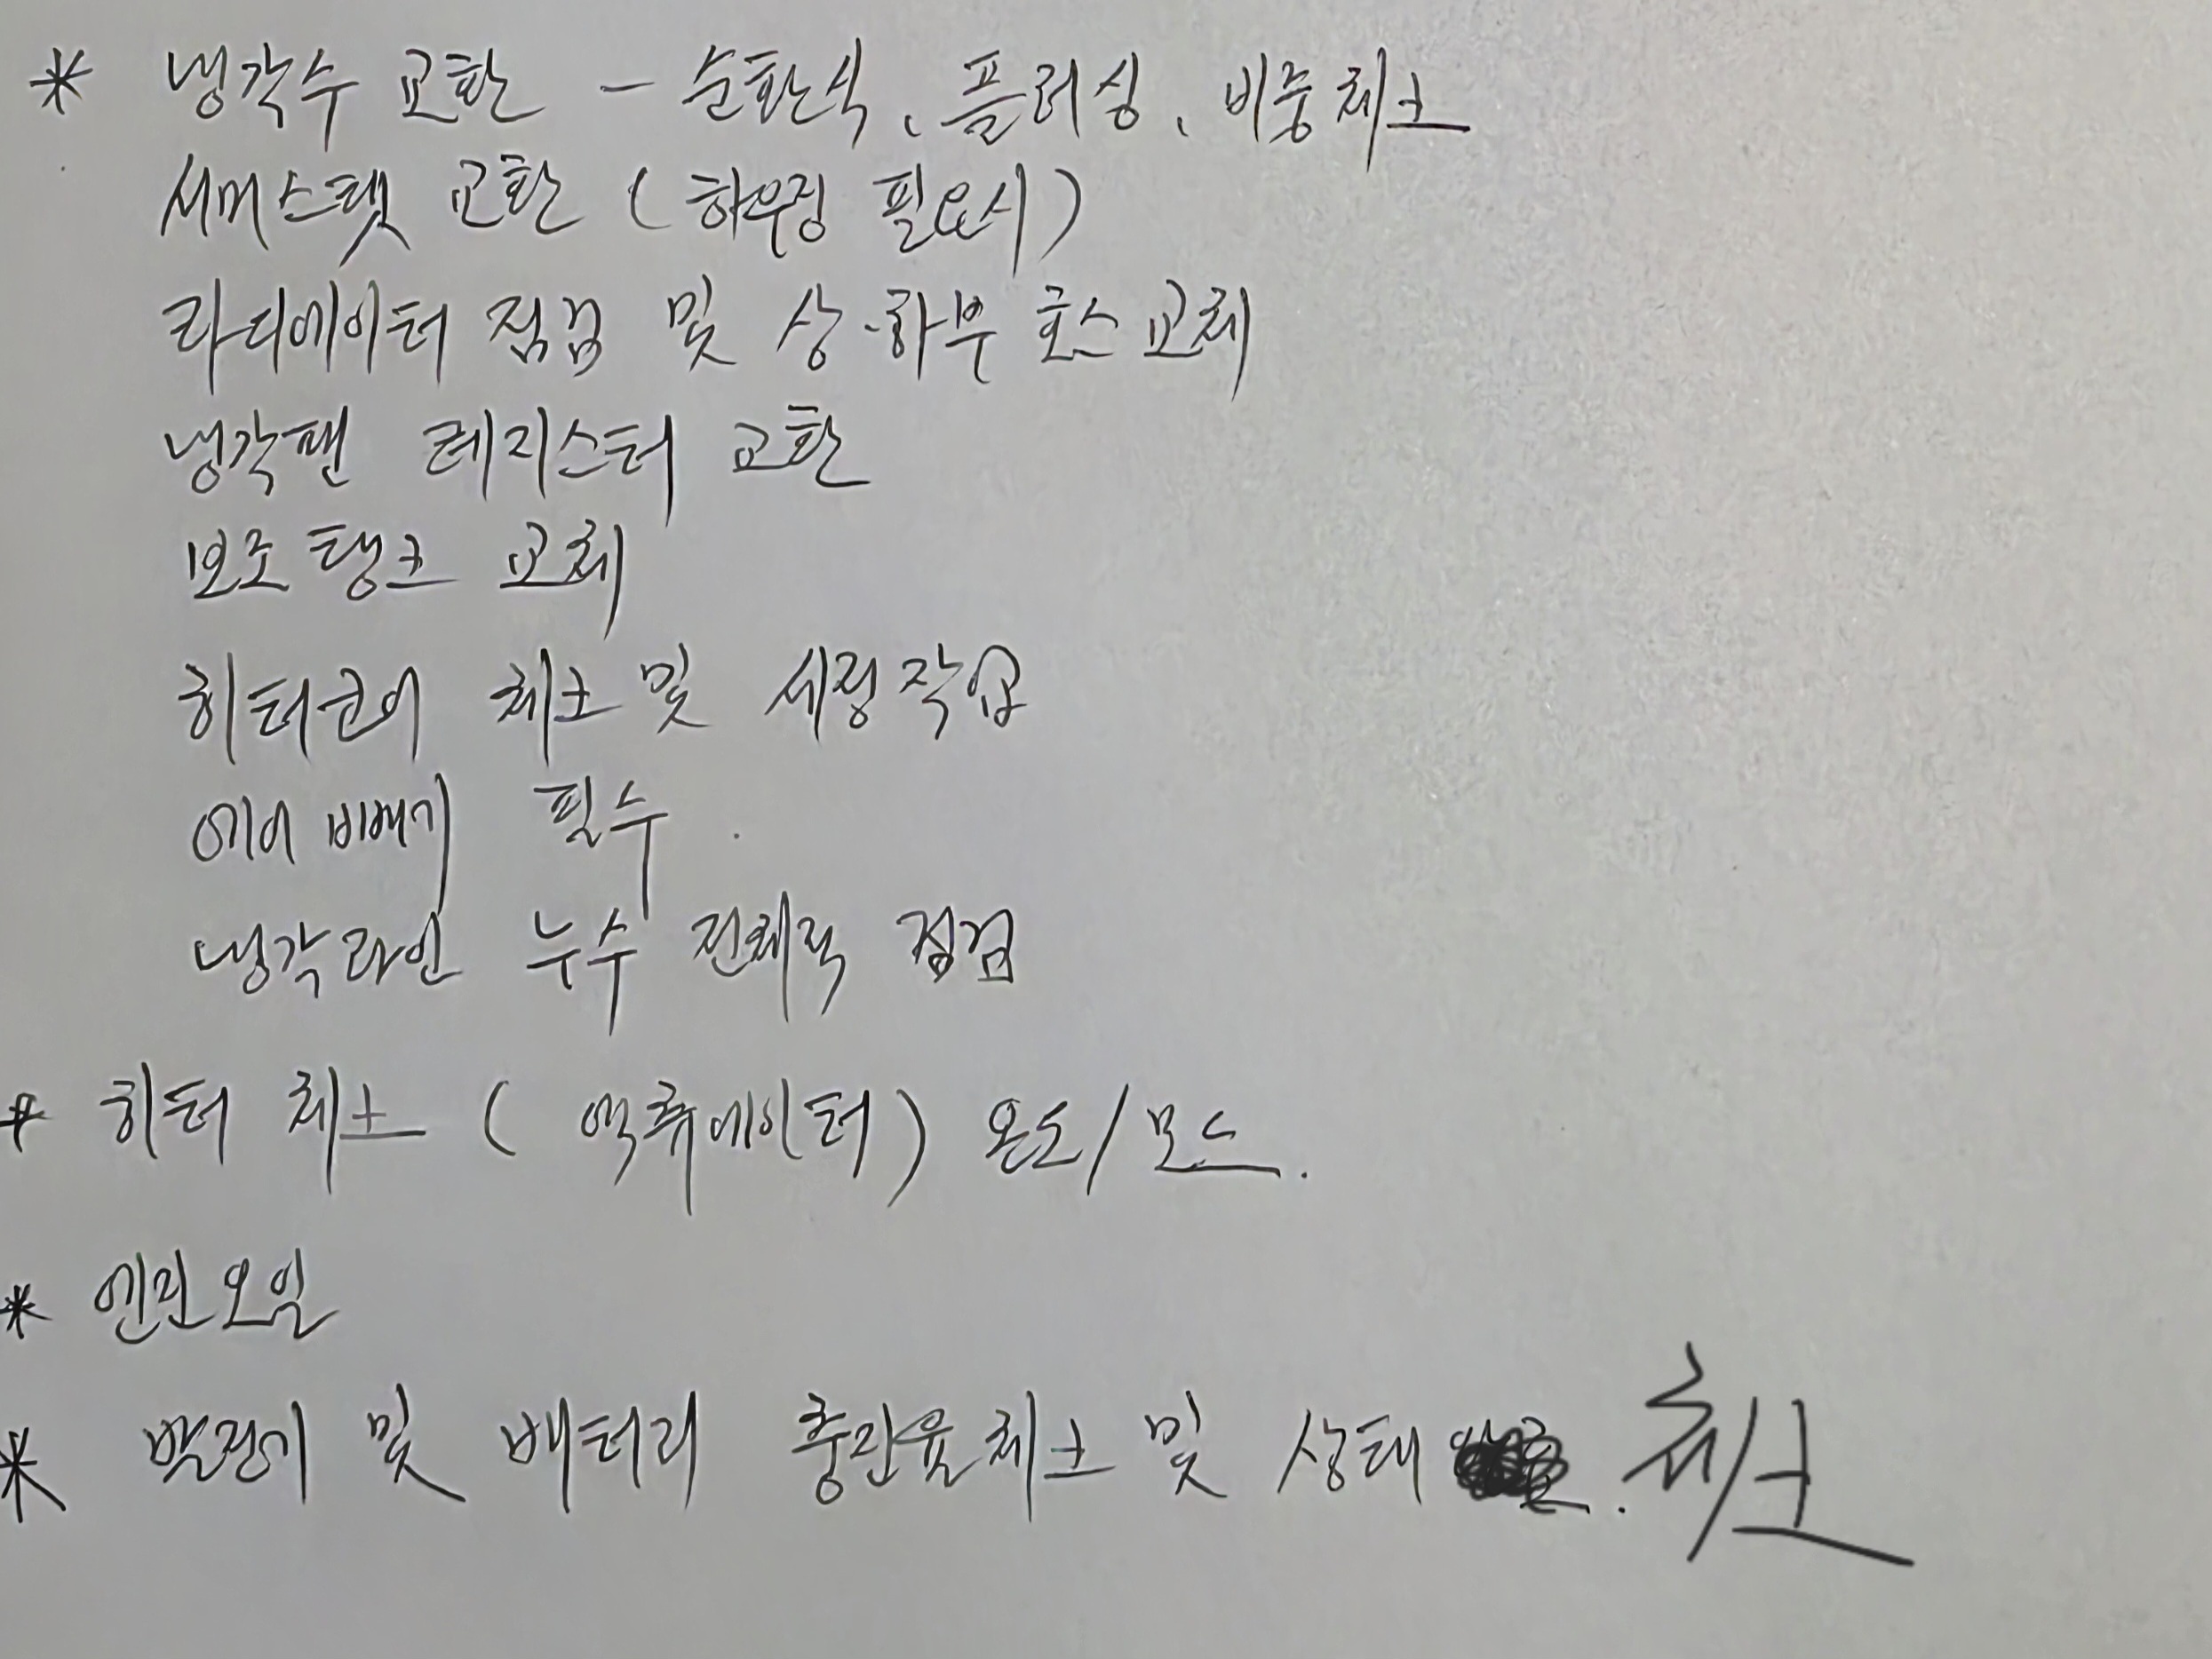 * 냉각수 교환 - 순환식、플러싱、비중체크
서머스탯 교환 (하우징 필요시)
라디에이터 점검 및 상·하부 호스 교체
냉각팬 레지스터 교환
보조탱크 교체
히터코어 체크 및 세정작업
에어 빼기 필수.
냉각라인 누수 전체적 점검
* 히터 체크 ( 액츄에이터) 온도/모드.
* 엔진오일
* 발전기 및 배터리 충전율체크 및 상태 . 체크